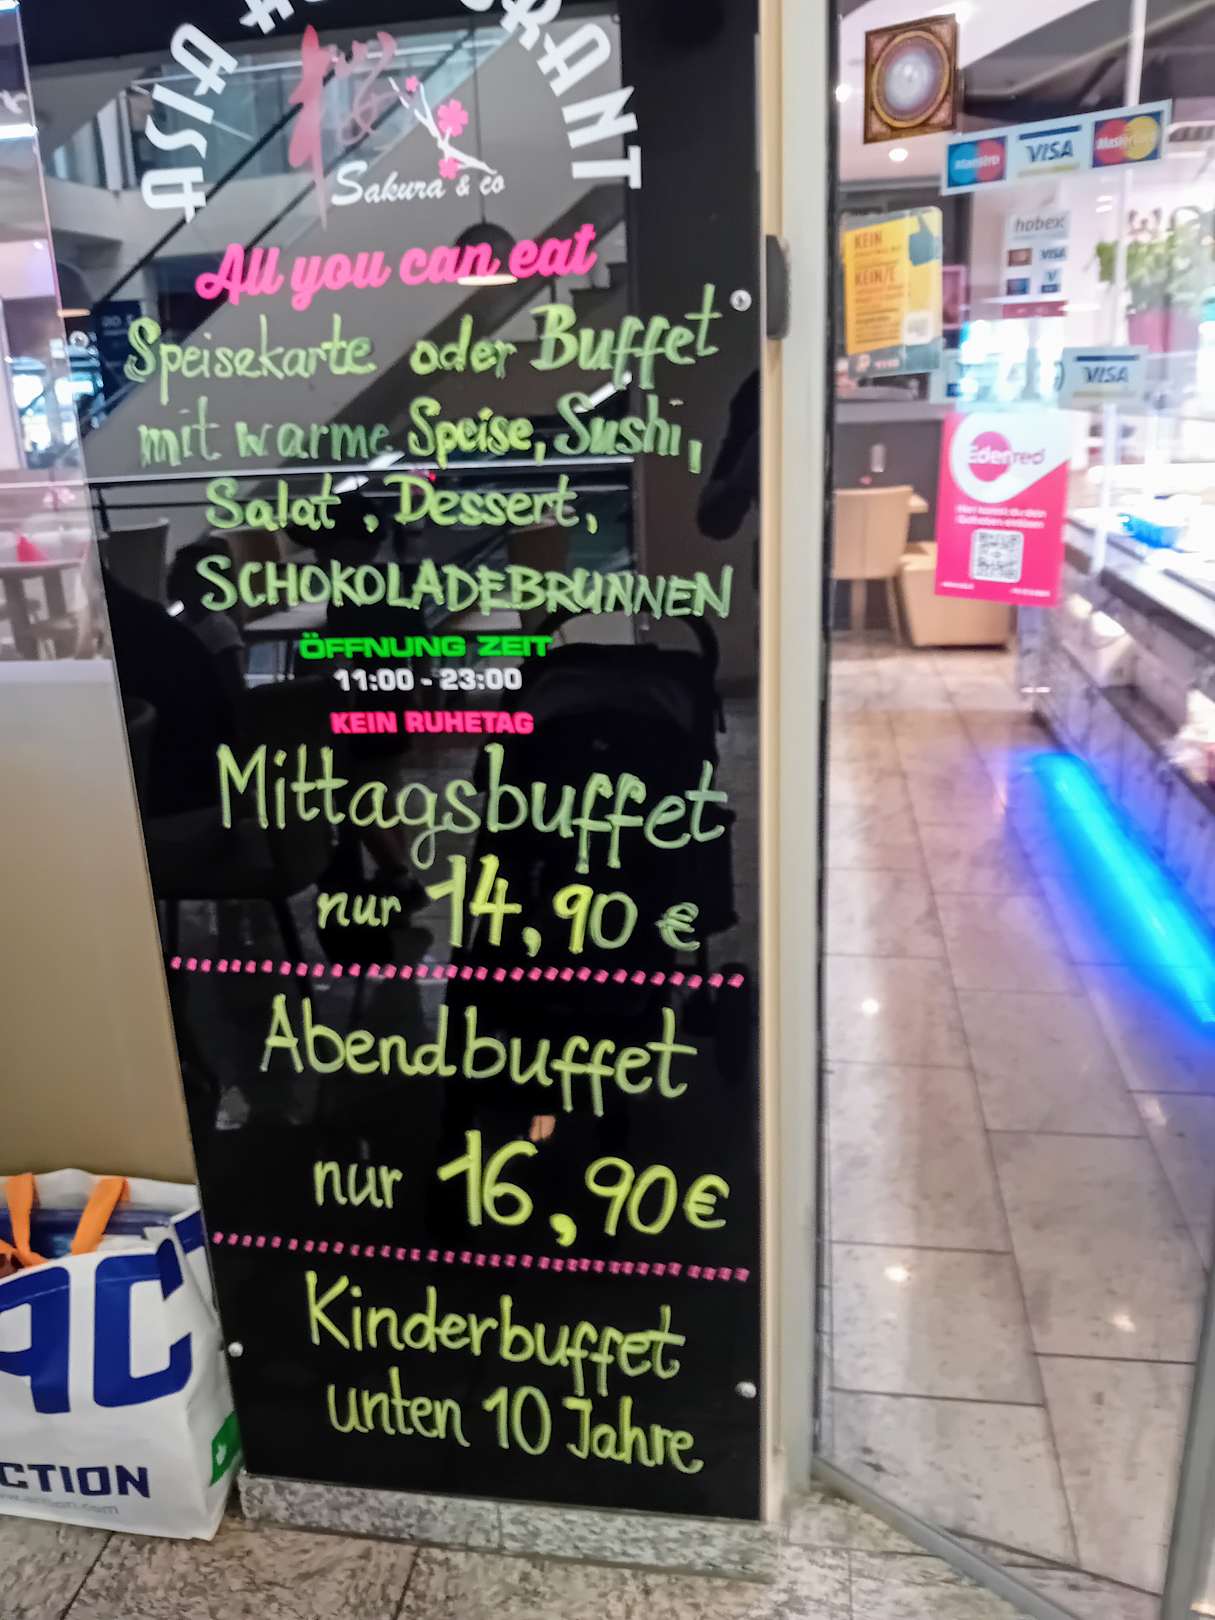 ASIA
Sakura & co
All you can eat
Speisekarte oder Buffet
mit warme Speise, Sushi,
Salat, Dessert,
SCHOKOLADEBRUNNEN
ÖFFNUNG ZEIT
11:00 - 23:00
KEIN RUHETAG
Mittagsbuffet
nur 14,90 €
Abendbuffet
nur 16,90€
Kinderbuffet
unten 10 Jahre
Maestro VISA MasterCard
KEIN
KEIN/E
hobex
VISA
V
VISA
Edenred
AC
CTION